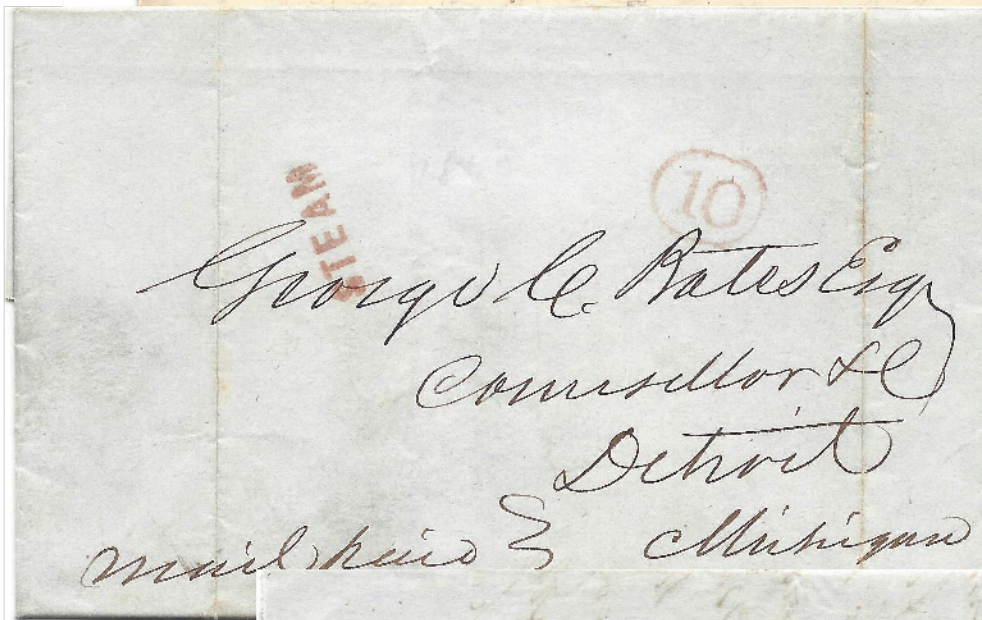 STEAM
10
George C. Bates Esq
Counsellor &C
Detroit
Michigan
mail